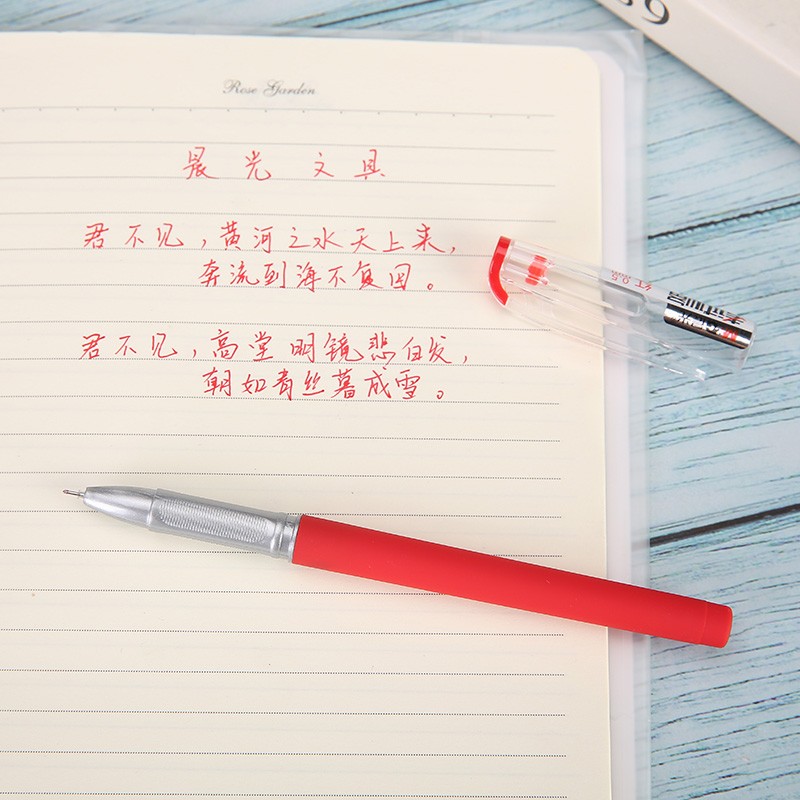 Rose Garden
晨光 文具
君不见,黄河之水天上来,
奔流到海不复回。
君不见,高堂明镜悲白发,
朝如青丝暮成雪。
红 0.5
考试